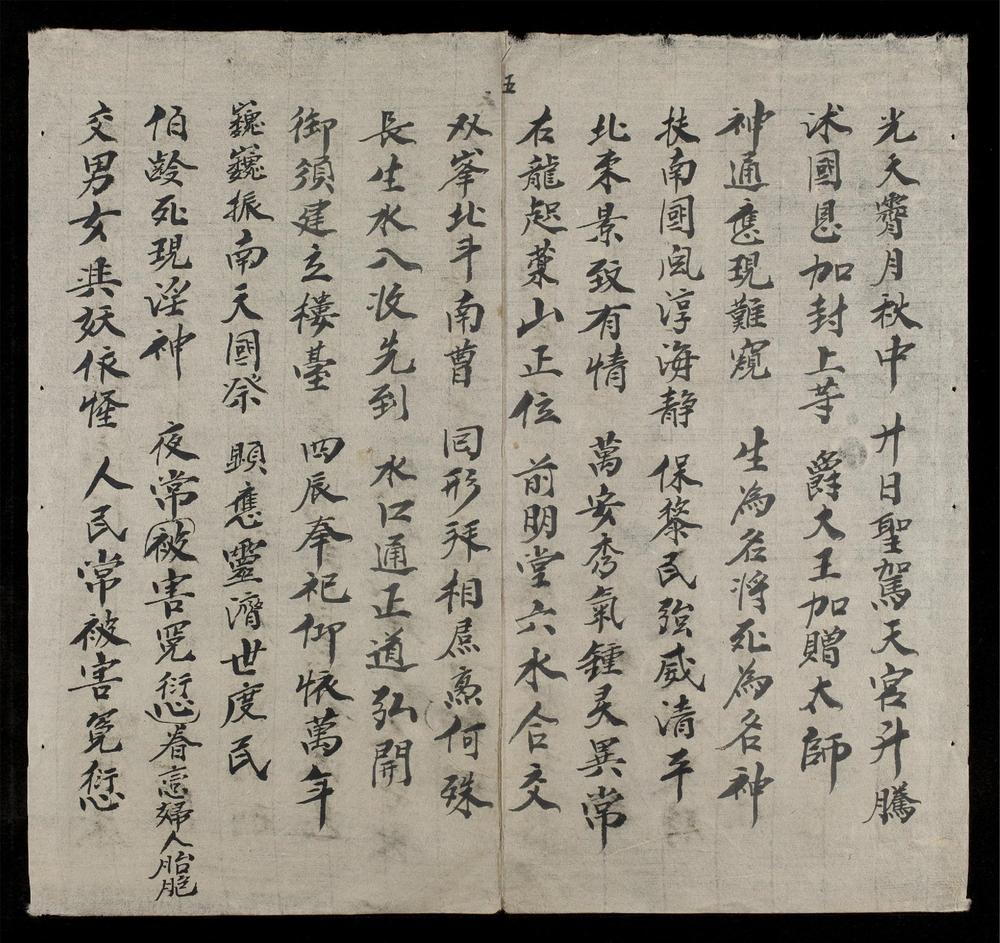 光天霽月秋中 廿日聖駕天宮升騰
沭國恩加封上等 爵大王加贈太師
神通應現難窺 生為名将死為名神
扶南國風淳海静 保黎民強威清平
北來景致有情 萬安秀氣鍾灵異常
右龍起葉山正位 前明堂六水合交
五
双峯北斗南曹 囙形拜相何殊
長生水入收先到 水口通正道弘開
御須建立樓臺 四辰奉祀仰懷萬年
巍巍振南天國祭 顕應靈濟世度民
伯齡死現淫神 夜常被害冤愆眷恋婦人胎胞
交男女具妖依怪 人民常被害冤愆